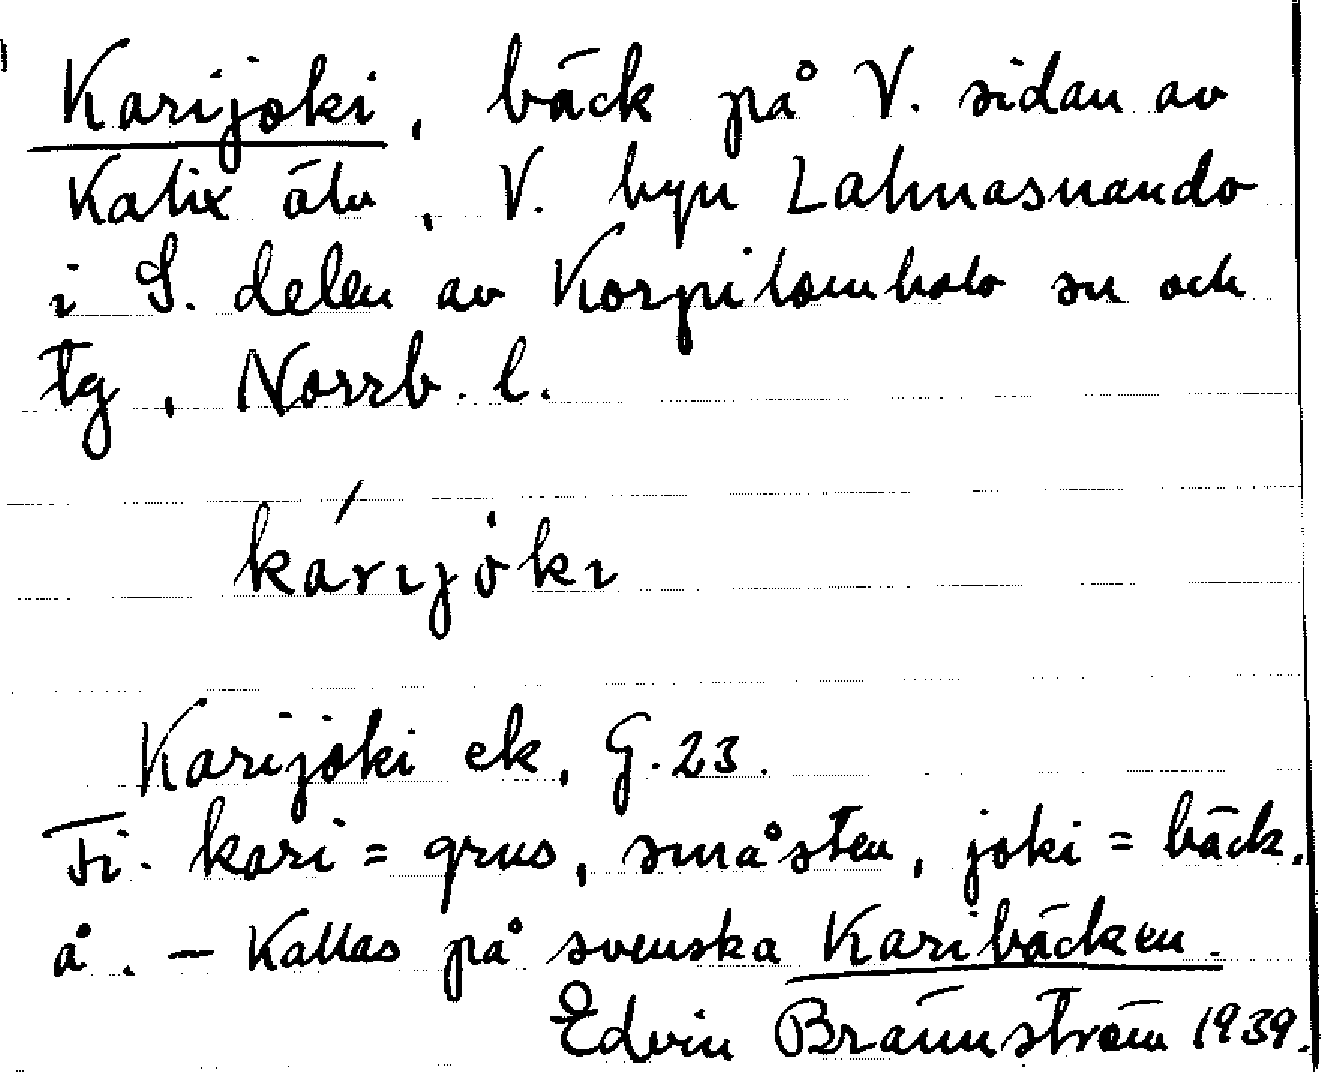 Karijoki, bäck på V. sidan av
Kalix älv, V. byn Lahnasuando
i S. delen av Korpilombolo sn och
tg, Norrb. l.
kárijȯkı
Karijoki ek, G. 23.
Fi. kari = grus, småsten, joki = bäck,
å. – Kallas på svenska Karibäcken.
Edvin Brännström 1939.